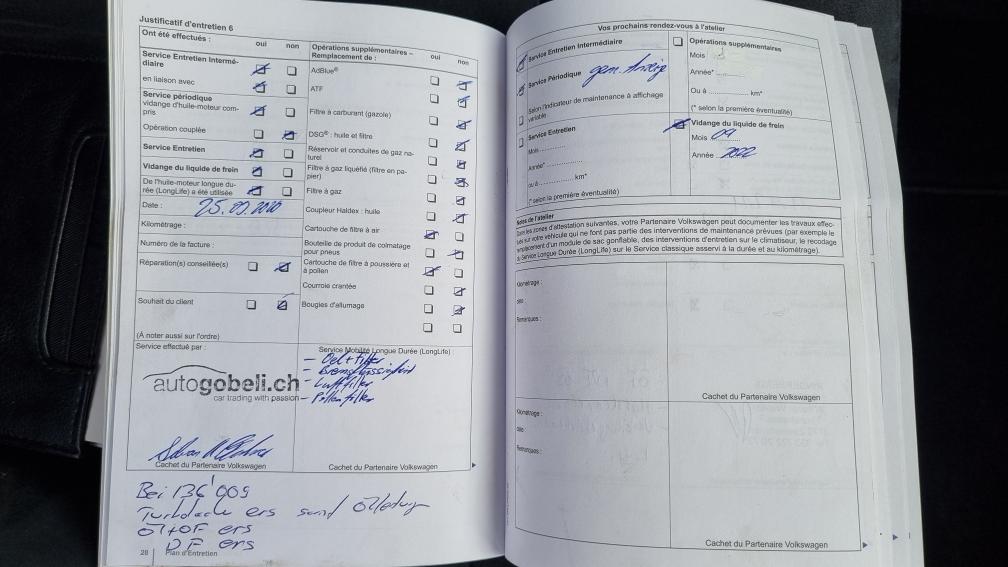 Justificatif d'entretien 6
Ont été effectués :
oui non
Service Entretien Intermé-
diaire
en liaison avec
Service périodique
vidange d'huile-moteur com-
pris
Opération couplée
Service Entretien
Vidange du liquide de frein
De l'huile-moteur longue du-
rée (LongLife) a été utilisée
Date : 25.09.2020
Kilométrage :
Numéro de la facture :
Réparation(s) conseillée(s)
Souhait du client
(À noter aussi sur l'ordre)
Opérations supplémentaires –
Remplacement de :
oui non
AdBlue®
ATF
Filtre à carburant (gazole)
DSG® : huile et filtre
Réservoir et conduites de gaz na-
turel
Filtre à gaz liquéfié (filtre en pa-
pier)
Filtre à gaz
Coupleur Haldex : huile
Cartouche de filtre à air
Bouteille de produit de colmatage
pour pneus
Cartouche de filtre à poussière et
à pollen
Courroie crantée
Bougies d'allumage
Service effectué par :
autogobeli.ch
car trading with passion
Cachet du Partenaire Volkswagen
Service Mobilité Longue Durée (LongLife) :
– Oel + filter
– Bremsflüssigkeit
– Luftfilter
– Pollenfilter
Cachet du Partenaire Volkswagen
Bei 136'009
ers
Öl+OF ers
ers
28 Plan d'Entretien
Vos prochains rendez-vous à l'atelier
Service Entretien Intermédiaire
Service Périodique gem. Anzeige
Selon l'indicateur de maintenance à affichage
variable
Service Entretien
Mois
Année*
ou à km*
(* selon la première éventualité)
Opérations supplémentaires
Mois
Année*
Ou à km*
(* selon la première éventualité)
Vidange du liquide de frein
Mois 09
Année 2022
Notes de l'atelier
d'attestation suivantes, votre Partenaire Volkswagen peut documenter les travaux effec-
sur votre véhicule qui ne font pas partie des interventions de maintenance prévues (par exemple le
d'un module de sac gonflable, des interventions d'entretien sur le climatiseur, le recodage
Service Longue Durée (LongLife) sur le Service classique asservi à la durée et au kilométrage).
Kilométrage :
Remarques :
Cachet du Partenaire Volkswagen
Kilométrage :
Remarques :
Cachet du Partenaire Volkswagen